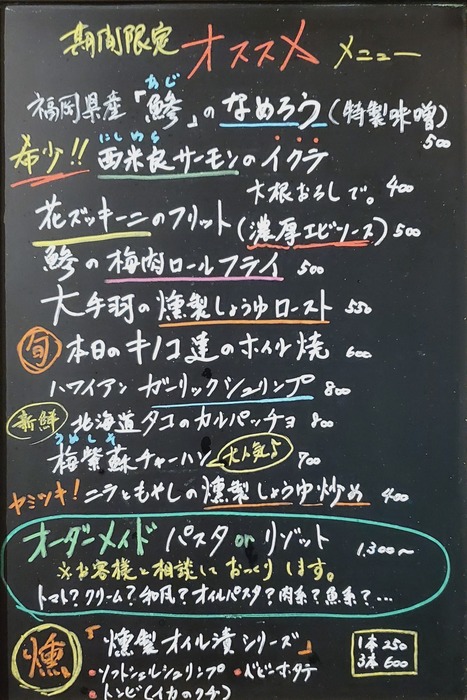 期間限定 オススメ メニュー
あじ
福岡県産「鯵」のなめろう(特製味噌) 500
にしめら
希少!! 西米良サーモンのイクラ
大根おろしで。 400
花ズッキーニのフリット(濃厚エビソース) 500
鯵の梅肉ロールフライ 500
大手羽の燻製しょうゆロースト 550
旬 本日のキノコ達のホイル焼 600
ハワイアン ガーリックシュリンプ 800
新鮮 北海道タコのカルパッチョ 800
うめしそ
梅紫蘇チャーハン 大人気♪ 700
ヤミツキ! ニラともやしの燻製しょうゆ炒め 400
オーダーメイド パスタ or リゾット 1,300〜
※お客様と相談しておつくりします。
トマト?クリーム?和風?オイルパスタ?肉系?魚系?…
燻 「燻製オイル漬シリーズ」
1本 250
3本 600
・ソフトシェルシュリンプ ・ベビーホタテ
・トンビ(イカのクチ)